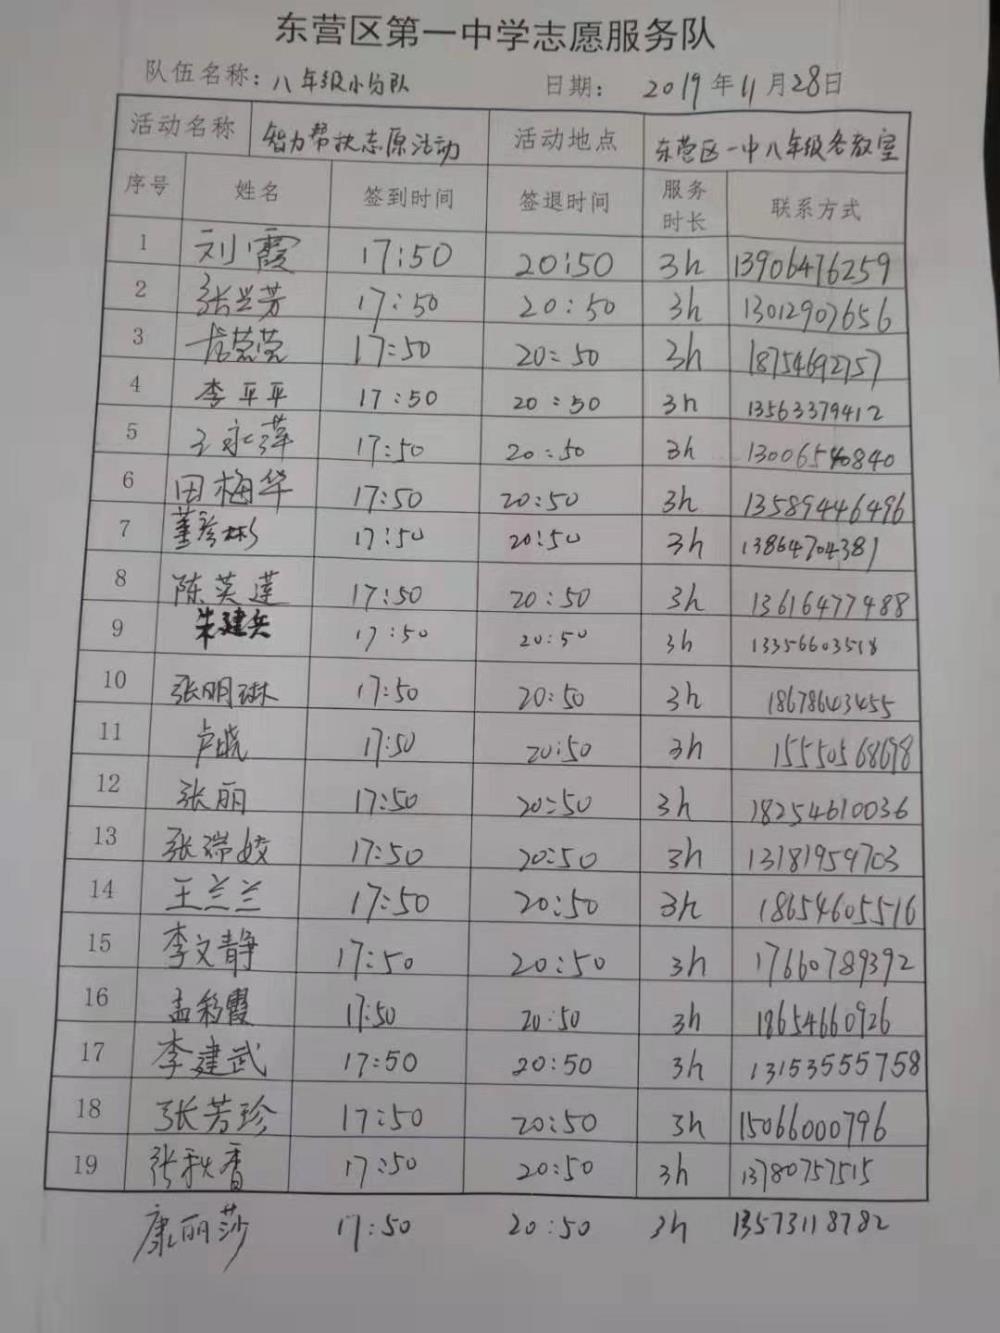 东营区第一中学志愿服务队
队伍名称：八年级小分队 日期： 2019年11月28日
活动名称 智力帮扶志愿活动 活动地点 东营区一中八年级各教室
序号 姓名 签到时间 签退时间 服务时长 联系方式
1 刘霞 17:50 20:50 3h 13906476259
2 张兰芳 17:50 20:50 3h 13012907656
3 荣荣 17:50 20:50 3h 18754692757
4 李平平 17:50 20:50 3h 13563379412
5 王永萍 17:50 20:50 3h
6 田梅华 17:50 20:50 3h 13589446496
7 董彦彬 17:50 20:50 3h 13864704381
8 陈英莲 17:50 20:50 3h 13616477488
9 朱建兵 17:50 20:50 3h 13356603518
10 张明琳 17:50 20:50 3h 18678643455
11 卢晓 17:50 20:50 3h 15550568698
12 张丽 17:50 20:50 3h 18254610036
13 张瑞姣 17:50 20:50 3h 13181959703
14 王兰兰 17:50 20:50 3h 18654605516
15 李文静 17:50 20:50 3h 17660789392
16 孟彩霞 17:50 20:50 3h 18654660926
17 李建武 17:50 20:50 3h 13153555758
18 张芳珍 17:50 20:50 3h 15066000796
19 张秋香 17:50 20:50 3h 13780757515
康丽莎 17:50 20:50 3h 13573118782